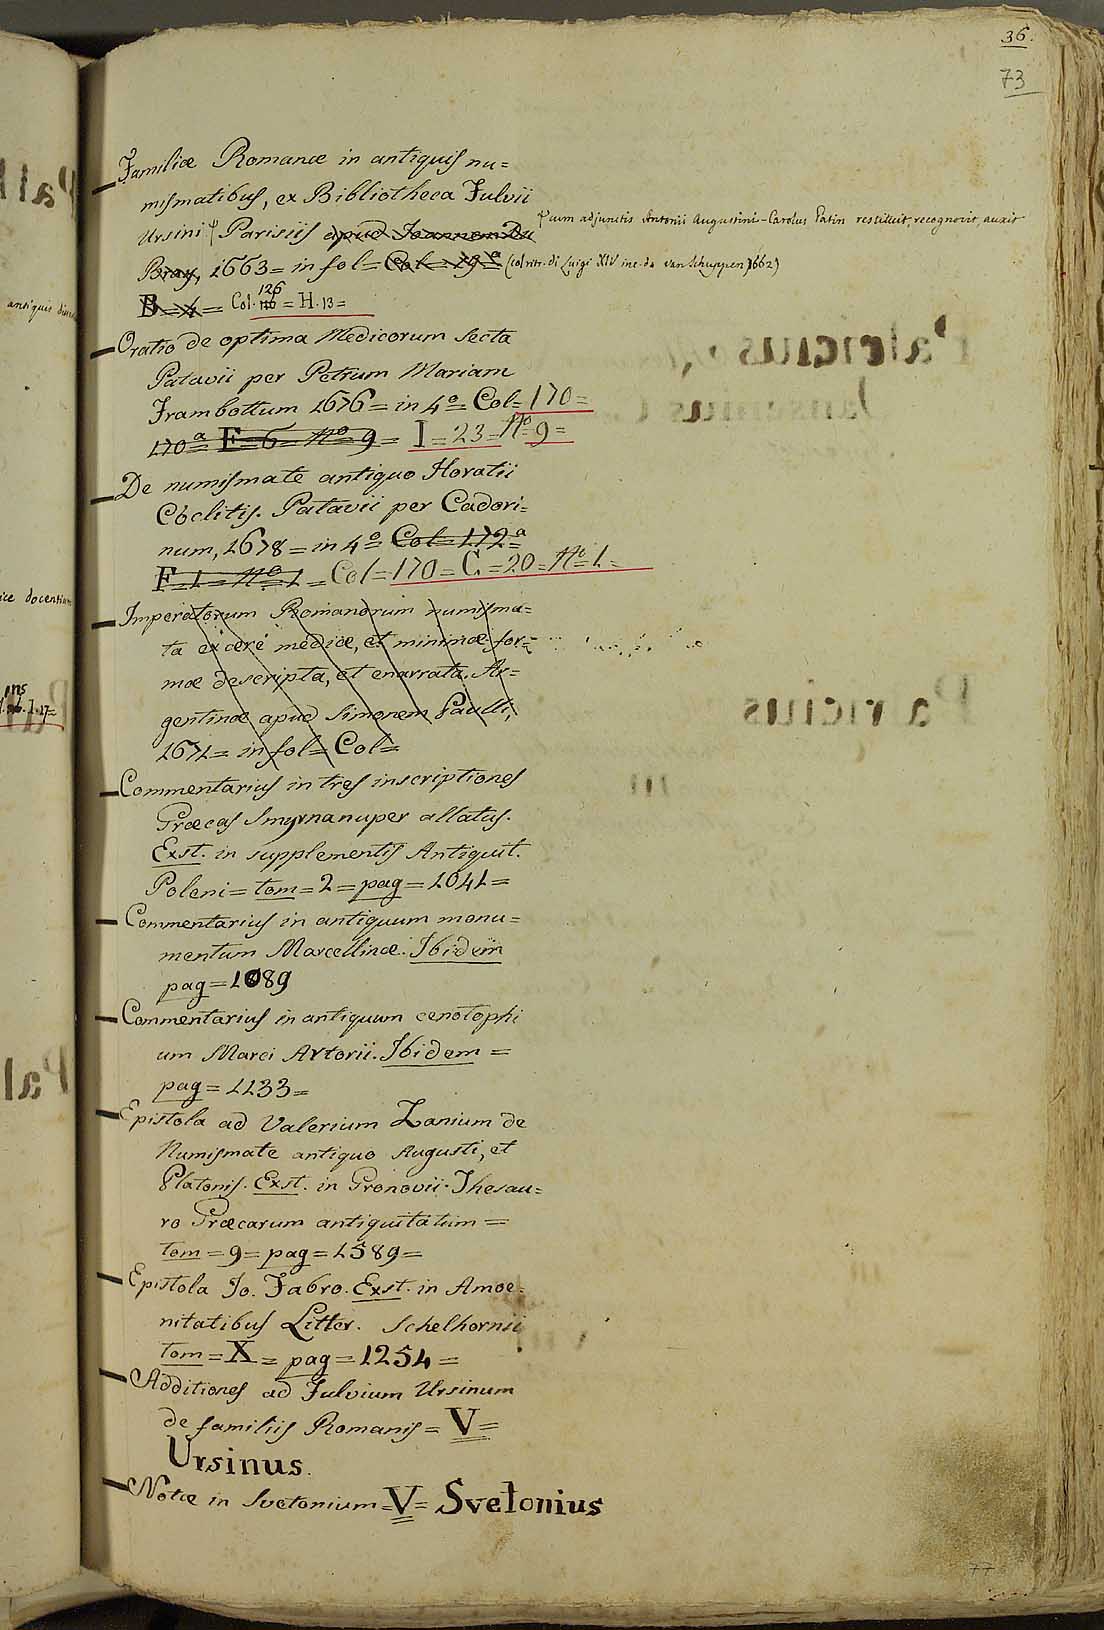 36.
73
Familiæ Romanæ in antiquis nu=
mismatibus, ex Bibliotheca Fulvii
Ursini φ Parisiis apud Joannem Du
φ cum adjunctis Antonii Augustini - Carolus Patin restituit, recognovit, auxit
Bray, 1663 = in fol = Col = 19ª (col ritr. di Luigi XIV inc. da van Schuppen 1662)
B = 4 = Col. 126 = H. 13 =
Oratio de optima Medicorum secta
Patavii per Petrum Mariam
Frambottum 1676 = in 4º = Col = 170 =
170ª = F = 6 = Nº 9 = I = 23 = Nº 9 =
De numismate antiquo Horatii
Coclitis. Patavii per Cadori=
num, 1678 = in 4º = Col = 172ª
F = 1 = Nº 1 = Col = 170 = C = 20 = Nº 1 =
Imperatorum Romanorum numisma=
ta ex ære mediæ, et minimæ for=
mæ descripta, et enarrata. Ar=
gentinæ apud Simonem Paulli,
1671 = in fol = Col =
Commentarius in tres inscriptiones
Græcas Smyrna nuper allatas.
Exst. in supplementis Antiquit.
Poleni = tom = 2 = pag = 1041 =
Commentarius in antiquum monu=
mentum Marcellinæ. Ibidem
pag = 1089
Commentarius in antiquum cenotaphi
um Marci Artorii. Ibidem =
pag = 1133 =
Epistola ad Valerium Zanium de
Numismate antiquo Augusti, et
Platonis. Exst. in Gronovii Thesau=
ro Græcarum antiquitatum =
tom = 9 = pag = 1589 =
Epistola Jo. Fabro. Exst. in Amoe=
nitatibus Litter. Schelhornii
tom = X = pag = 1254 =
Additiones ad Fulvium Ursinum
de familiis Romanis = V =
Ursinus.
Notæ in Svetonium = V = Svetonius
77